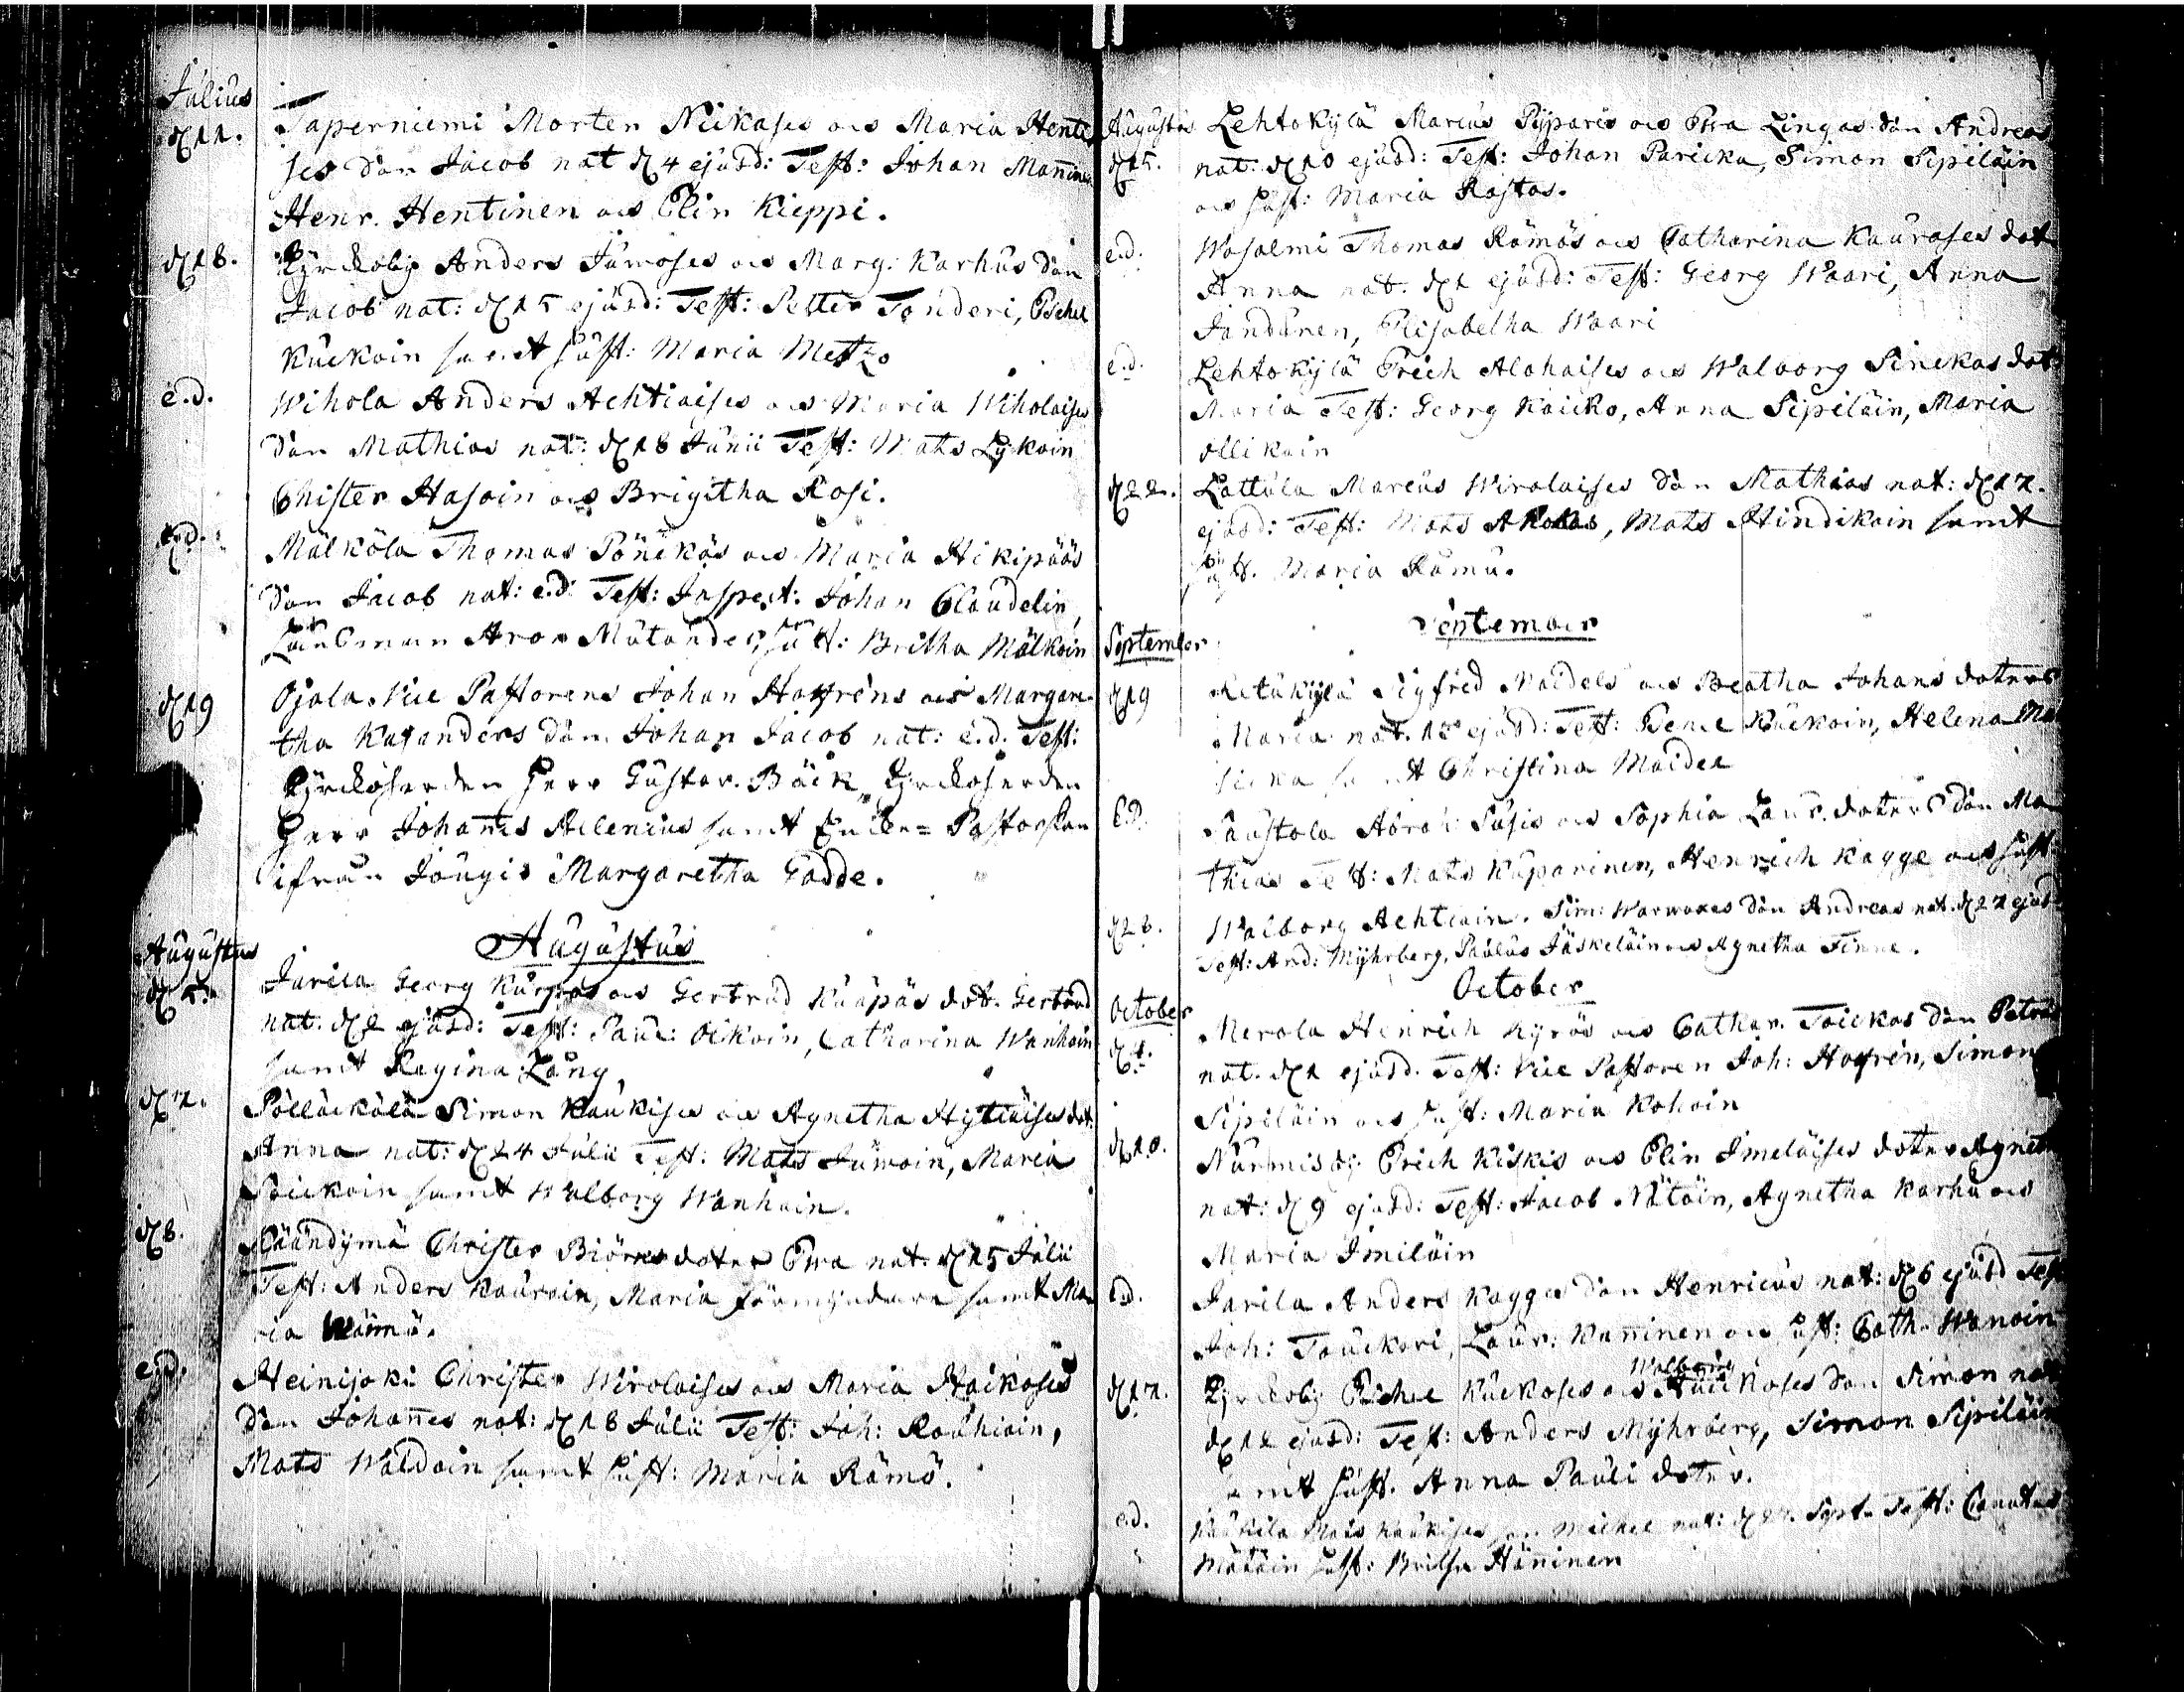 Julius
d 11. Taperniemi Morten Nickases och Maria Henti
ses Son Jacob nat d 4 ejusd: Test: Johan Mañinen
Henr. Hentinen och Elin Kieppi.
d 18. Kyrckoby Anders Jumoses och Marg: Karhus Son
Jacob nat: d 15 ejusd: Test: Petter Tonderi, Eschel
Kuckoin samt hust: Maria Metzo
e.d. Wihola Anders Achtiaises och Maria Wiholaises
Son Mathias nat: d 18 Junii Test: Mats Lykoin
Chister Hasoin och Brigitha Rosi.
e.d. Mälkölä Thomas Pönickäs och Maria Hikipääs
Son Jacob nat: e.d. Test: Inspect: Johan Claudelin,
Länsman Aron Mutander, hust: Britha Mälköin
d 19 Ojala Vice Pastorens Johan Hoffréns och Margare-
tha Kajanders Son Johan Jacob nat: e.d. Test:
Kyrckoherden Herr Gustav. Bäck, Kyrckoherden
Herr Johañis Alenius samt Pastorskan
ifrån Jougis Margaretha Gadde.
Augustus
Augustus
d 5. Jarila Georg Kurpas och Gertrud Kuäpäs dot. Gertrud
nat. d 2 ejusd: Test: Paul: Oikoin, Catharina Wanhain
samt Regina Lång
d 7. Pölläckälä Simon Kaukises och Agnetha Hytiäises dot.
Anna nat: d 24 Julii Test: Mats Jumoin, Maria
Poickoin samt Walborg Wanhain.
d 8. Räändymä Christer Biörns doter Ewa nat. d 15 Julii
Test: Anders Kauroin, Maria samt Ma-
ria Rämö.
e.d. Heinijoki Christer Wirolaises och Maria Haikoses
Son Johañes nat: d 18 Julii Test: Joh: Rouhiain,
Mats Waldoin samt hust: Maria Rämö.
Augustus Lehtokylä Marcus Pyparis och Ewa Lingas Son Andreas
d 15. nat: d 10 ejusd: Test: Johan Paricka, Simon Sipiläin
och hust: Maria Rastas.
e.d. Wasalmi Thomas Rämös och Catharina Kauroses dot
Anna nat. d 1 ejusd: Test: Georg Waari, Anna
Jandunen, Elisabetha Waari
e.d. Lehtokylä Erich Alohaises och Walborg Sinckas dot
Maria Test: Georg Kaicko, Anna Sipiläin, Maria
Ollikain
d 22. Lattula Marcus Wirolaises Son Mathias nat: d 17.
ejusd: Test: Mats Akokas, Mats Hindikain samt
hust. Maria Rämä.
September
September
d 19 Retukylä Sigfred Maidels och Beatha Johans doters
Maria nat. 15 ejusd: Test: Kuckoin, Helena Ma
sicka samt Christina Maidel
e.d. Paustola Abrah: Susis och Sophia Laur. doters Son Ma
thias Test: Mats Kuparinen, Henrich Kagge och hust
Walborg Achtiain.
d 26. Sim: Warwases Son Andreas nat. d 22 ejusd
Test: And: Myhrberg, Paulus Jäskeläin och Agnetha Finne.
October
October
d 4. Merola Henrich Kyrös och Cathar. Toickas Son Petrus
nat. d 1 ejusd. Test: Vice Pastoren Joh: Hoffrén, Simon
Sipiläin och hust: Maria Kohoin
d 10. Nurmisby Erich Kiskis och Elin Imeläises doter Agnet
nat: d 9 ejusd: Test: Jacob Nätöin, Agnetha Karhu och
Maria Imiläin
e.d. Jarila Anders Kagges Son Henricus nat: d 6 ejusd Test
Joh: Touckori, Laur: Kañinen och hust: Cath. Wanoin
d 17. Kyrckoby Eschel Kuckoses och Walborg Huckoses Son Simon nat
d 12 ejusd: Test: Anders Myhrberg, Simon Sipiläin
samt hust. Anna Pauli doter.
e.d. Kaukila Mats Kaukises Son Michel nat: d 27. Sept. Test: Canutus
Mätöin hust: Britha Häñinen